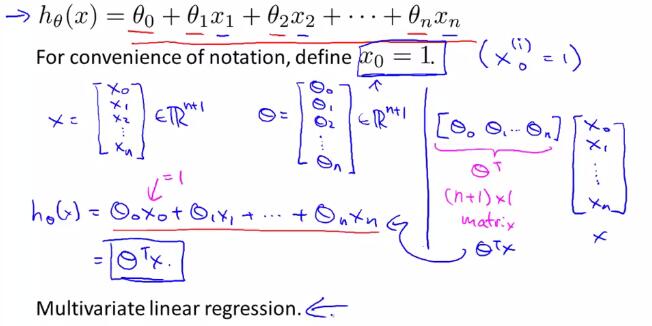 → hθ(x) = θ0 + θ1x1 + θ2x2 + ··· + θnxn
For convenience of notation, define x0 = 1. (x0^(i) = 1)
x = [x0 x1 x2 ⋮ xn] ∈ ℝ^(n+1) θ = [θ0 θ1 θ2 ⋮ θn] ∈ ℝ^(n+1)
[θ0 θ1 ··· θn] [x0 x1 ⋮ xn]
θ^T
(n+1) x 1
matrix
x
θ^T x
= 1
hθ(x) = θ0x0 + θ1x1 + ··· + θnxn
= θ^T x.
Multivariate linear regression. ←